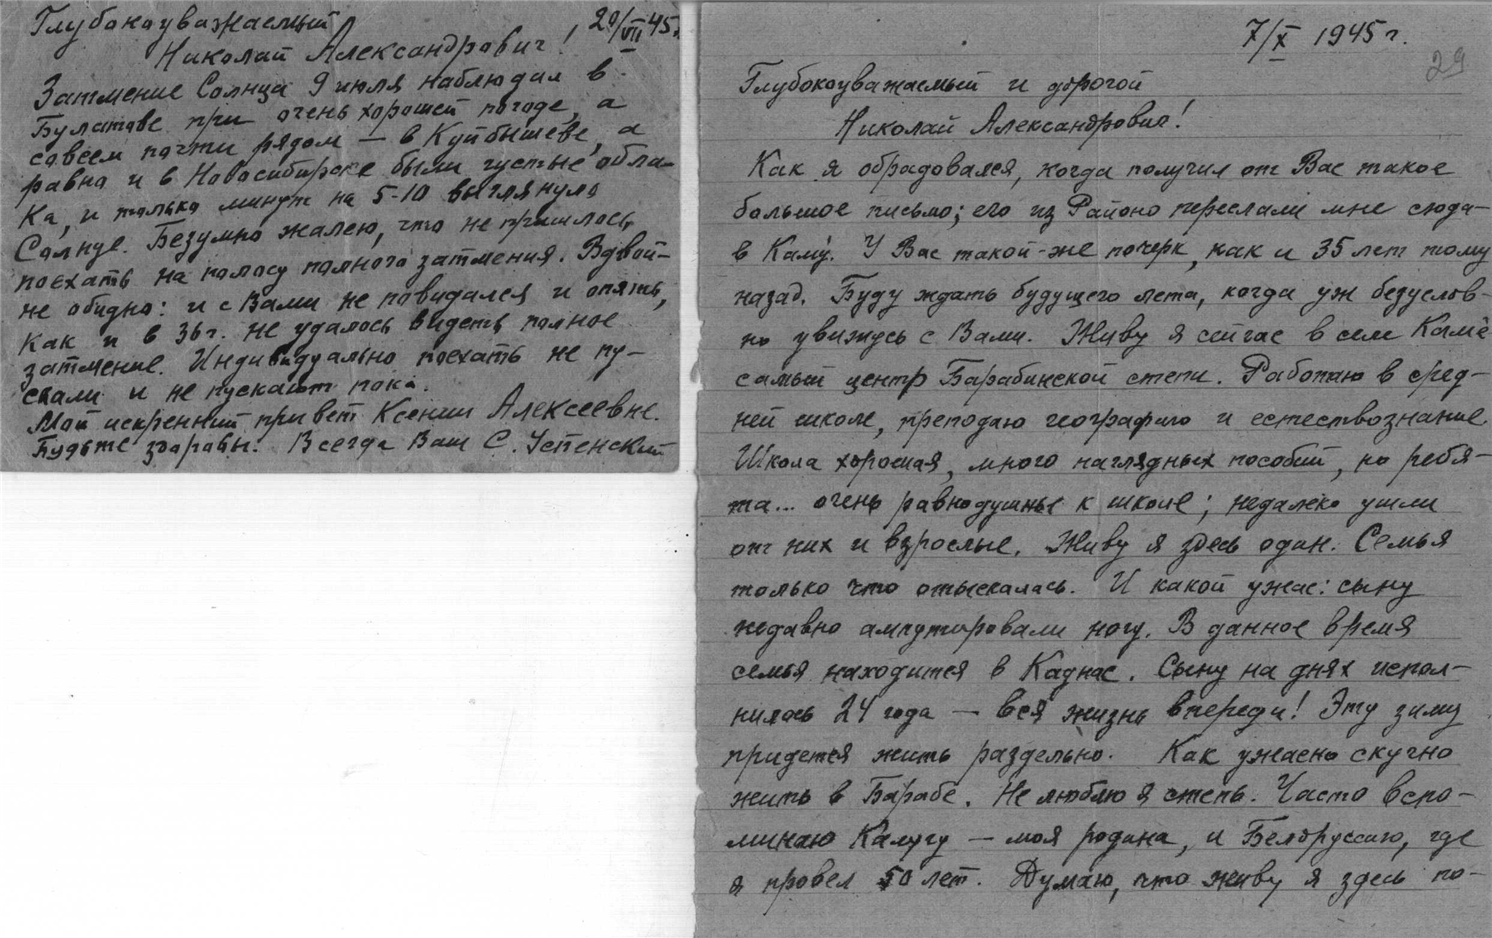 Глубокоуважаемый
Николай Александрович! 20/VII 45г.
Затмение Солнца 9 июля наблюдал в
Булатове при очень хорошей погоде, а
совсем почти рядом — в Куйбышеве, а
равно и в Новосибирске были густые обла-
ка, и только минут на 5-10 выглянуло
Солнце. Безумно жалею, что не пришлось
поехать на полосу полного затмения. Вдвой-
не обидно: и с Вами не повидался и опять,
как и в 36 г. не удалось видеть полное
затмение. Индивидуально поехать не пу-
скали и не пускают пока.
Мой искренний привет Ксении Алексеевне.
Будьте здоровы. Всегда Ваш С. Успенский
7/X 1945 г.
29
Глубокоуважаемый и дорогой
Николай Александрович!
Как я обрадовался, когда получил от Вас такое
большое письмо; его из Районо переслали мне сюда-
в Каму. У Вас такой-же почерк, как и 35 лет тому
назад. Буду ждать будущего лета, когда уж безуслов-
но увижусь с Вами. Живу я сейчас в селе Каме
самый центр Барабинской степи. Работаю в сред-
ней школе, преподаю географию и естествознание
Школа хорошая, много наглядных пособий, но ребя-
та... очень равнодушные к школе; недалеко ушли
от них и взрослые. Живу я здесь один. Семья
только что отыскалась. И какой ужас: сыну
недавно ампутировали ногу. В данное время
семья находится в Каунас. Сыну на днях испол-
нилось 24 года — вся жизнь впереди! Эту зиму
придется жить раздельно. Как ужасно скучно
жить в Барабе. Не люблю я степь. Часто вспо-
минаю Калугу — моя родина, и Белоруссию, где
я провел 50 лет. Думаю, что живу я здесь по-